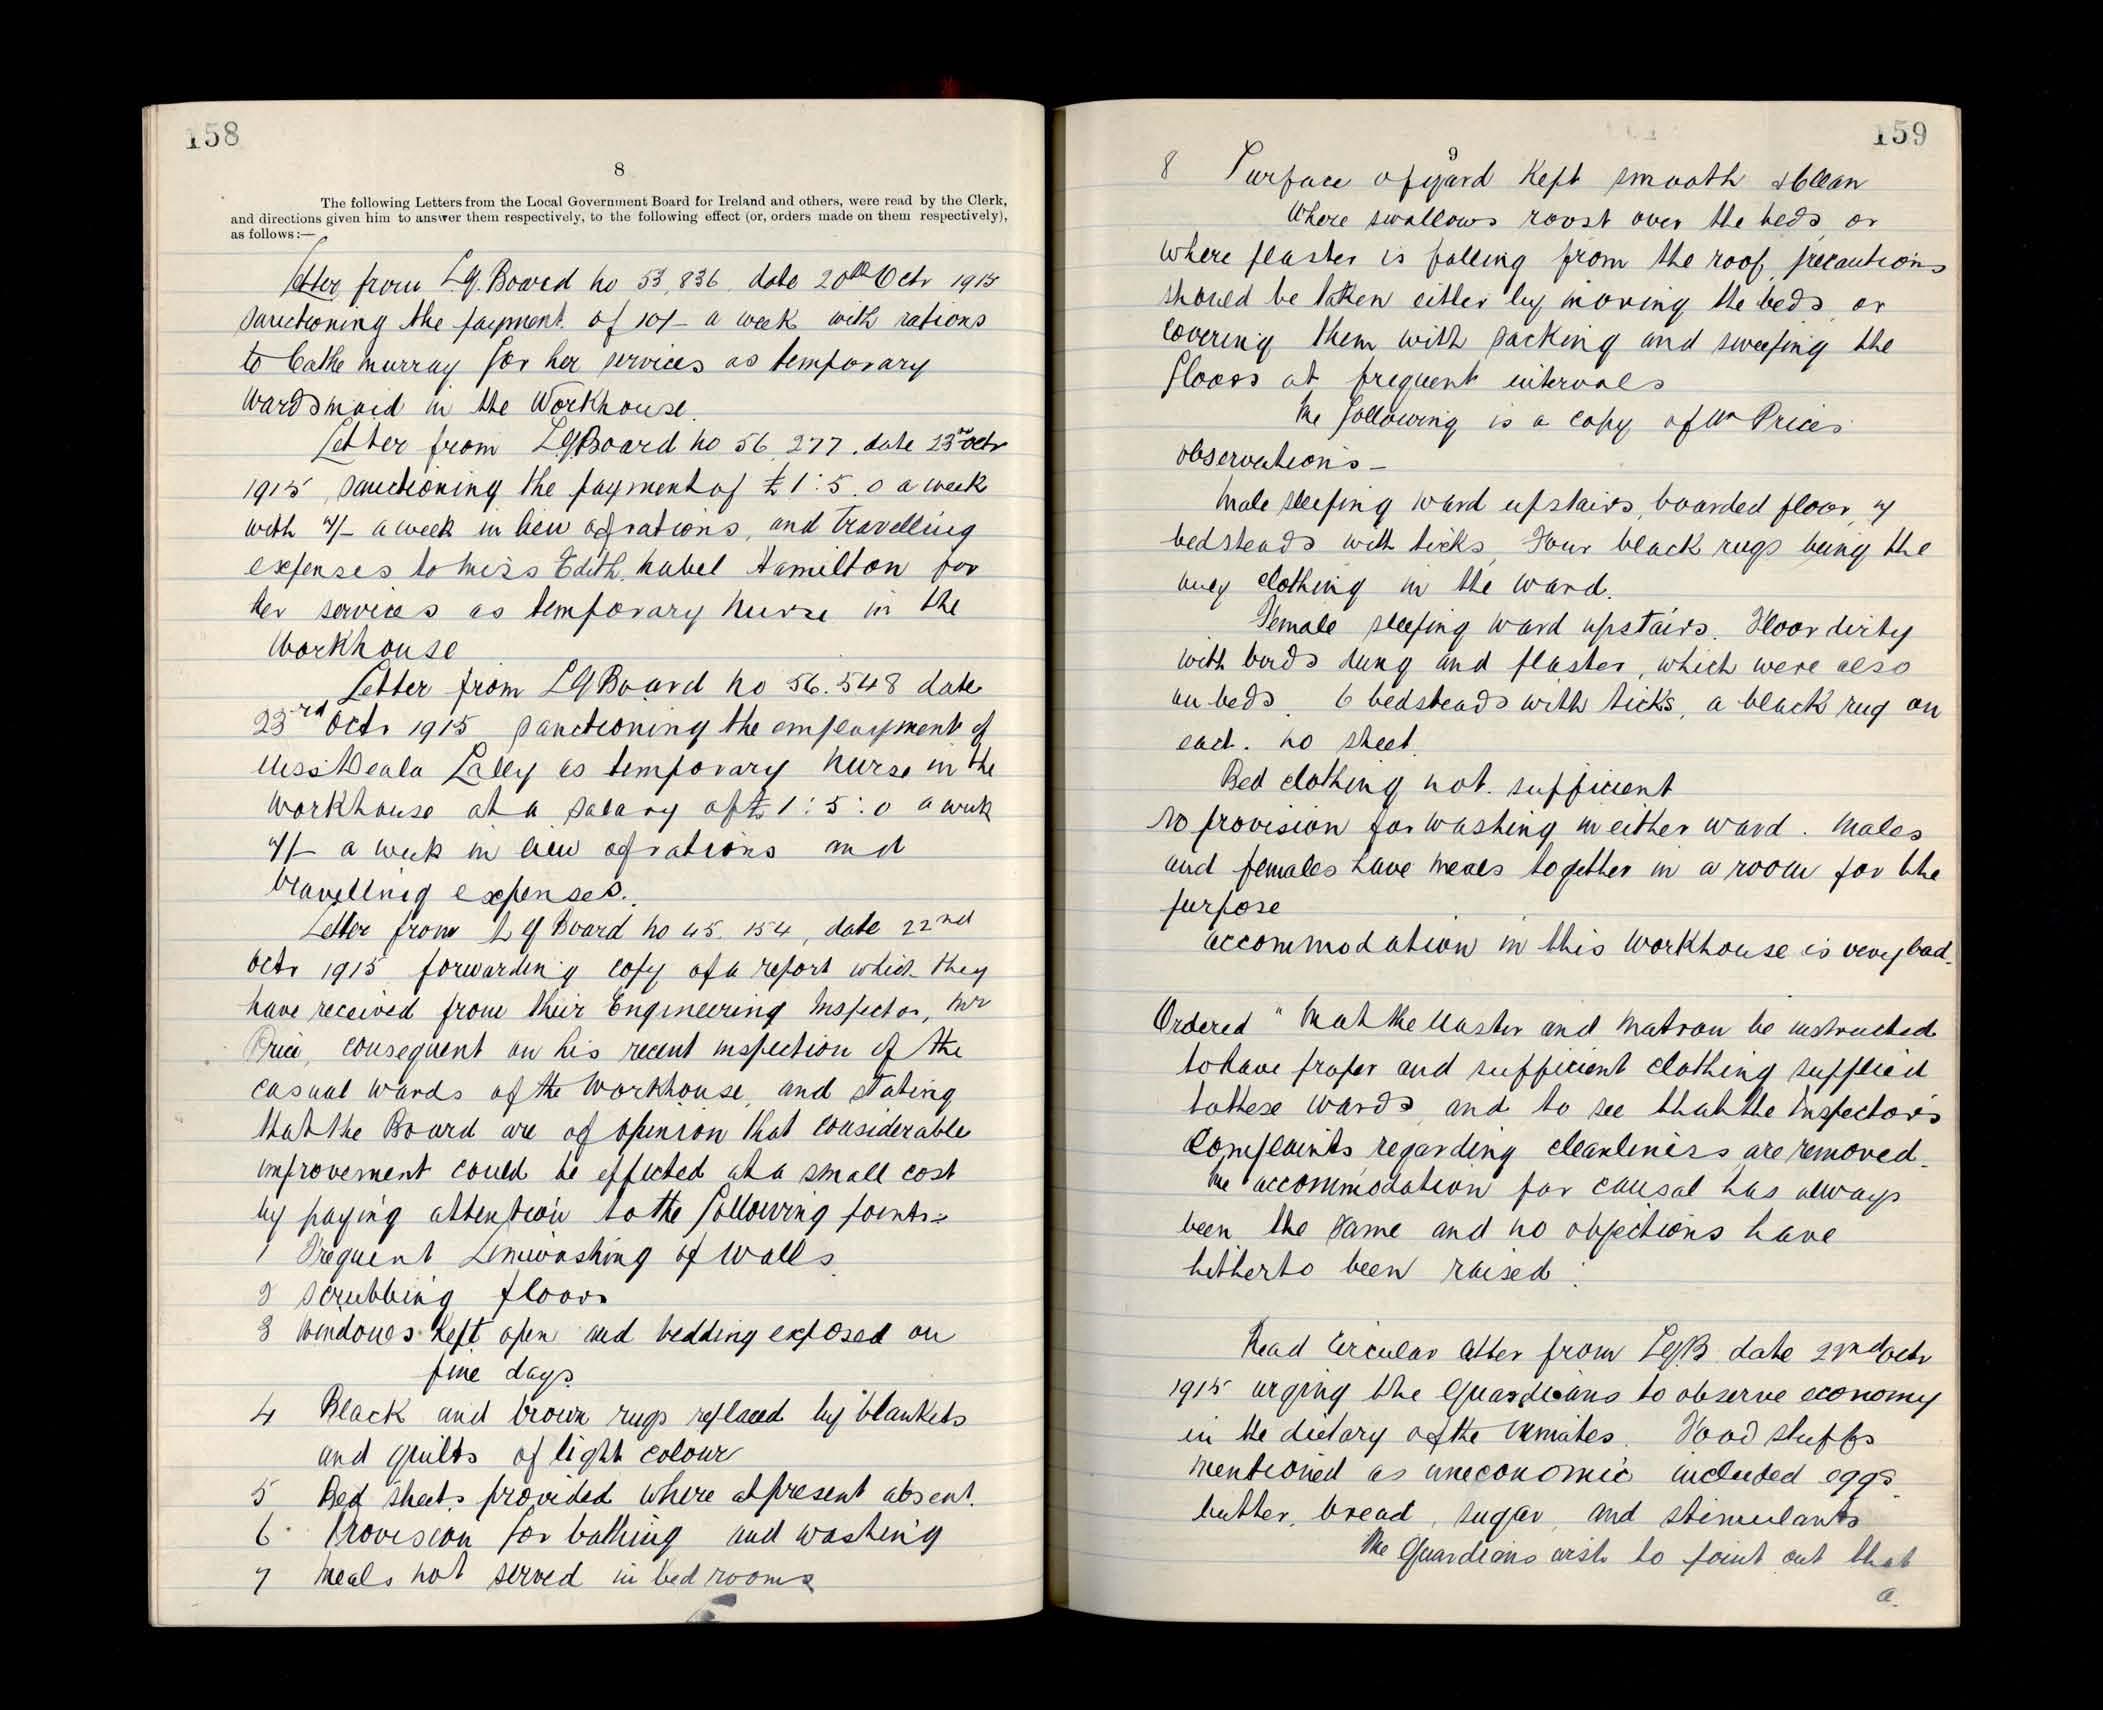 158
8
The following Letters from the Local Government Board for Ireland and others, were read by the Clerk,
and directions given him to answer them respectively, to the following effect (or, orders made on them respectively),
as follows:—
Letter from L.G. Board no 53,836 date 20th Octr 1915
sanctioning the payment of 10/- a week with rations
to Cathe Murray for her services as temporary
Wardsmaid in the Workhouse.
Letter from LGBoard no 56,277. date 23rd Octr
1915 sanctioning the payment of £1:5.0 a week
with 7/- a week in lieu of rations, and travelling
expenses to Miss Edith Mabel Hamilton for
her services as temporary Nurse in the
Workhouse
Letter from LGBoard no 56.548 date
23rd Octr 1915 sanctioning the employment of
Miss Lally as temporary Nurse in the
Workhouse at a salary of £1:5:0 a week
7/- a week in lieu of rations and
travelling expenses.
Letter from L G Board no 45.154, date 22nd
Octr 1915 forwarding copy of a report which they
have received from their Engineering Inspector, Mr
Price, consequent on his recent inspection of the
casual wards of the Workhouse, and stating
that the Board are of opinion that considerable
improvement could be effected at a small cost
by paying attention to the following points:-
1 Frequent Limewashing of walls
2 Scrubbing floors
3 Windows kept open and bedding exposed on
fine days
4 Black and brown rugs replaced by blankets
and quilts of light colour
5 Bed sheets provided where at present absent.
6 Provision for bathing and washing
7 Meals not served in bed rooms
159
9
8 Surface of yard kept smooth & clean
Where swallows roost over the beds or
where plaster is falling from the roof, precautions
should be taken either by moving the beds or
covering them with sacking and sweeping the
floors at frequent intervals
The following is a copy of Mr Prices
observations –
Male sleeping ward upstairs, boarded floor, 7
bedsteads with ticks, Four black rugs being the
only clothing in the ward.
Female sleeping ward upstairs. Floor dirty
with birds dung and plaster, which were also
on beds. 6 bedsteads with ticks, a black rug on
each. no sheet.
Bed clothing not sufficient
No provision for washing in either ward. Males
and females have meals together in a room for the
purpose
Accommodation in this Workhouse is very bad.
Ordered " That the Master and Matron be instructed
to have proper and sufficient clothing supplied
to these wards, and to see that the Inspector's
Complaints regarding cleanliness are removed.
The accommodation for causal has always
been the same and no objections have
hitherto been raised.
Read Circular letter from LGB date 22nd Octr
1915 urging the Guardians to observe economy
in the dietary of the inmates. Food stuffs
mentioned as uneconomic included eggs
butter, bread, sugar, and stimulants
The Guardians wish to point out that
a